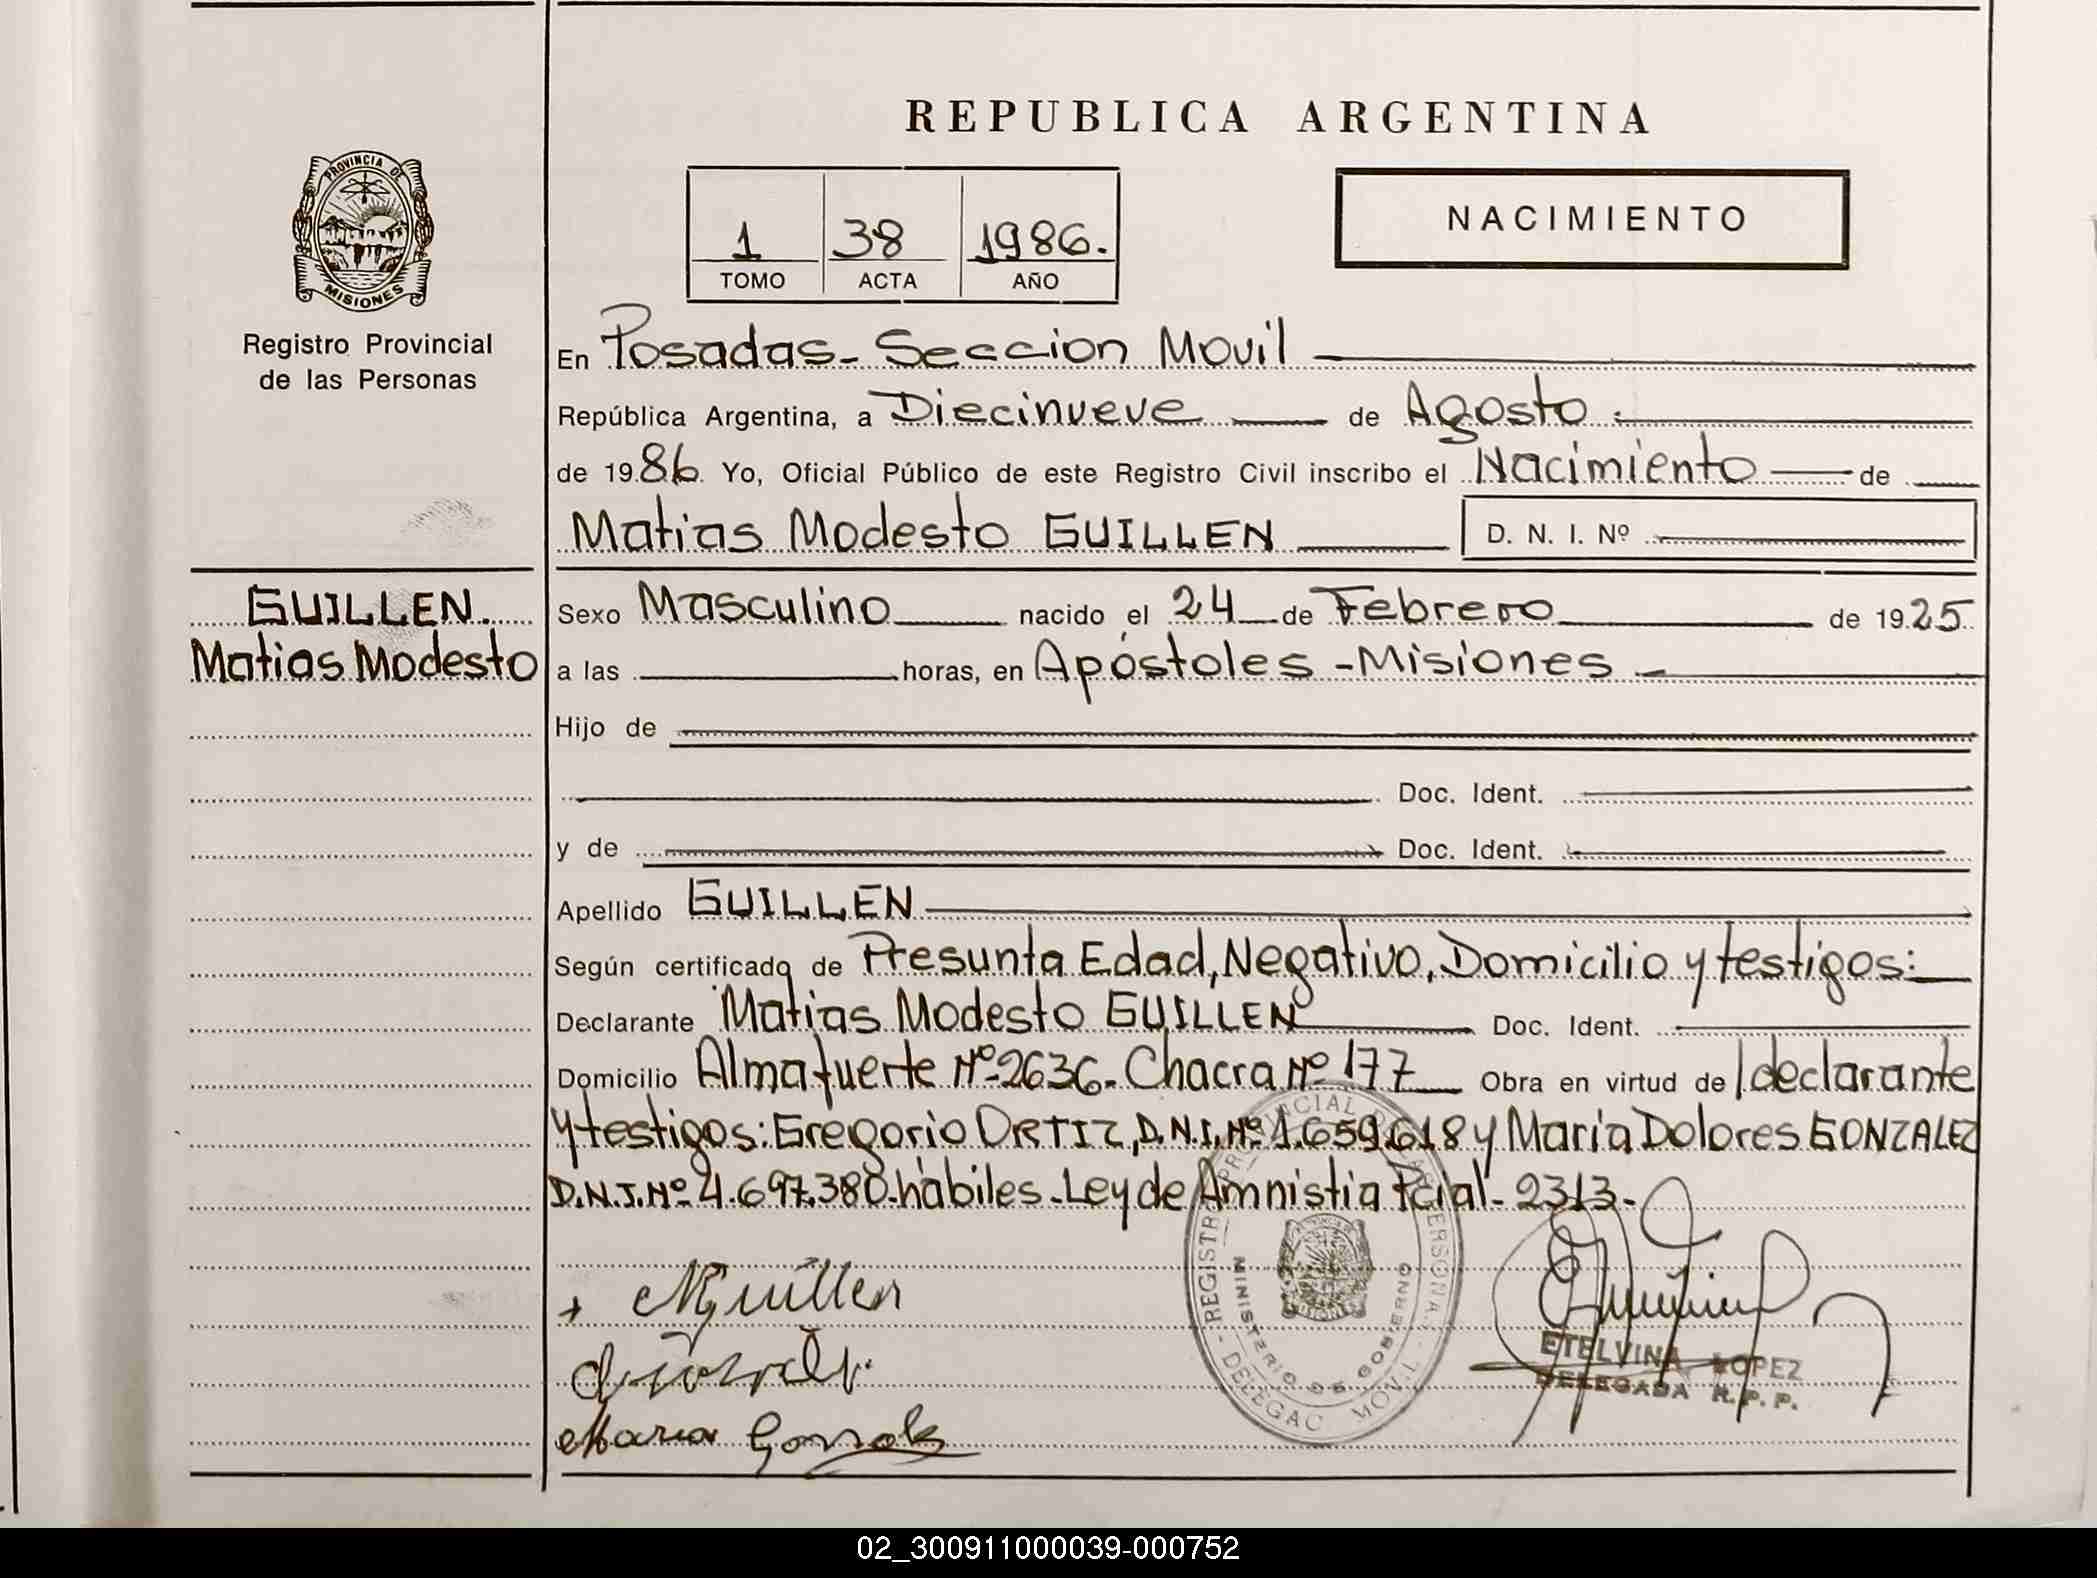 REPUBLICA ARGENTINA
PROVINCIA DE
MISIONES
Registro Provincial
de las Personas
1 38 1986.
TOMO ACTA AÑO
NACIMIENTO
En Posadas - Seccion Movil
República Argentina, a Diecinueve de Agosto
de 1986. Yo, Oficial Público de este Registro Civil inscribo el Nacimiento de
Matias Modesto GUILLEN D. N. I. Nº
GUILLEN
Matias Modesto
Sexo Masculino nacido el 24 de Febrero de 1925
a las horas, en Apóstoles - Misiones
Hijo de
Doc. Ident.
y de Doc. Ident.
Apellido GUILLEN
Según certificado de Presunta Edad, Negativo, Domicilio y testigos:
Declarante Matias Modesto GUILLEN Doc. Ident.
Domicilio Almafuerte Nº 2636 - Chacra Nº 177 Obra en virtud de declarante
y testigos: Gregorio ORTIZ, D.N.I. Nº 1.659.618 y Maria Dolores GONZALEZ
D.N.I. Nº 4.697.380 - hábiles - Ley de Amnistia Pcial - 2313 -
MGuillen
Maria Gonzalez
MINISTERIO DE GOBIERNO
DELEGAC MOVIL
ETELVINA LOPEZ
DELEGADA R.P.P.
02_300911000039-000752